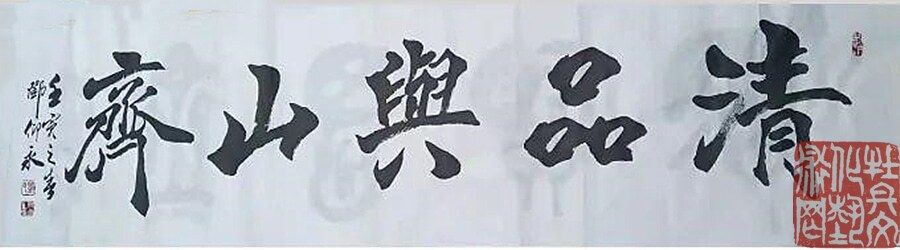 清品與山齊
壬寅之春
鄧仰永